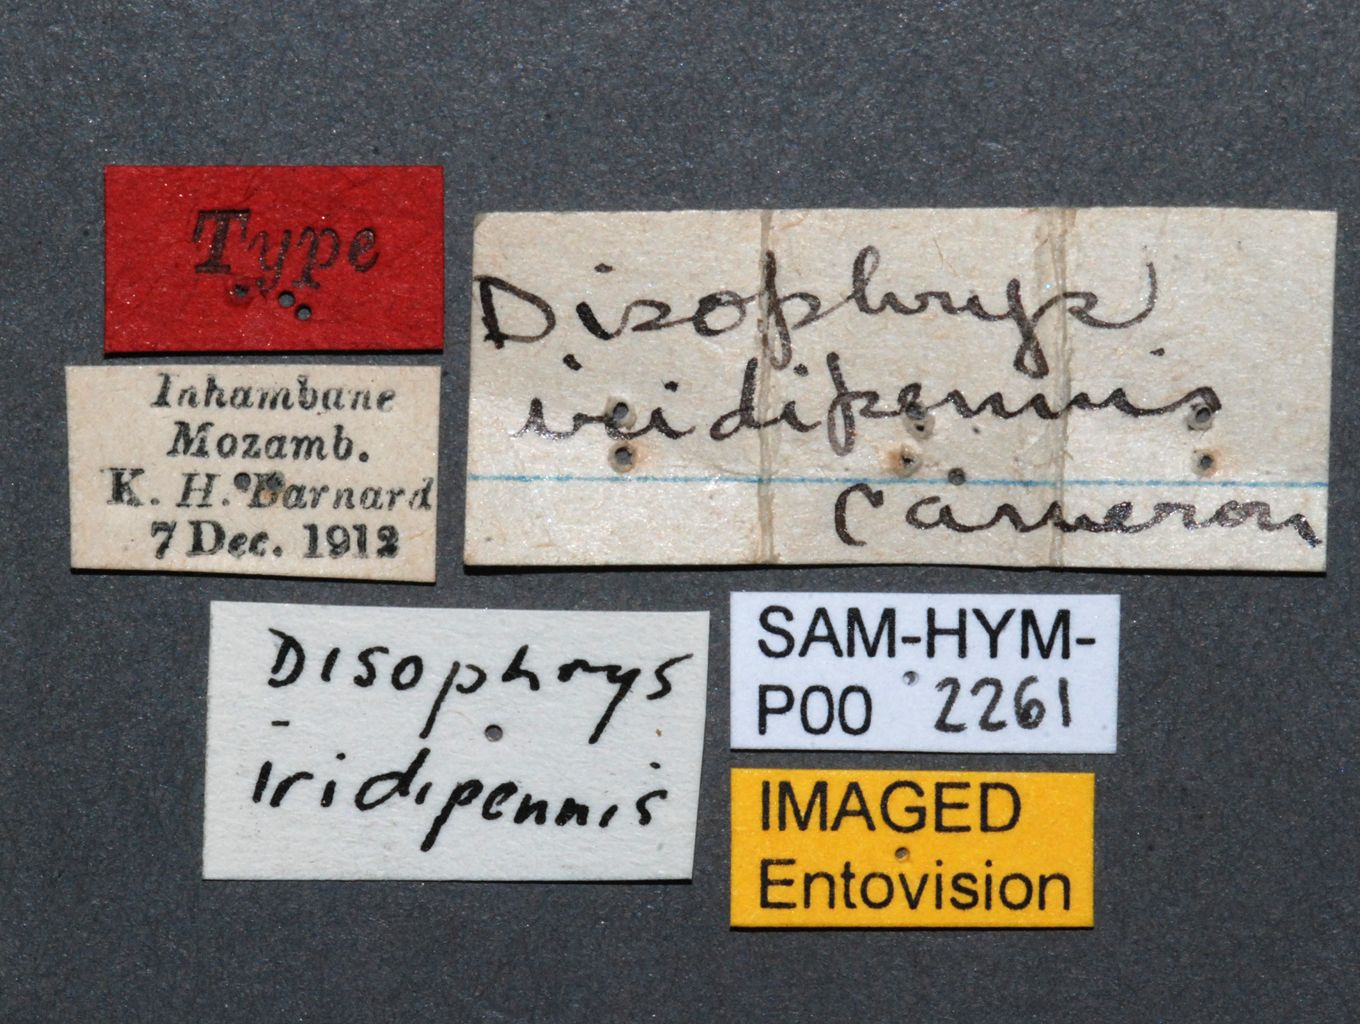 Type
Inhambane
Mozamb.
K. H. Barnard
7 Dec. 1912
Disophrys
iridipennis
Cameron
Disophrys
iridipennis
SAM-HYM-
P00 2261
IMAGED
Entovision